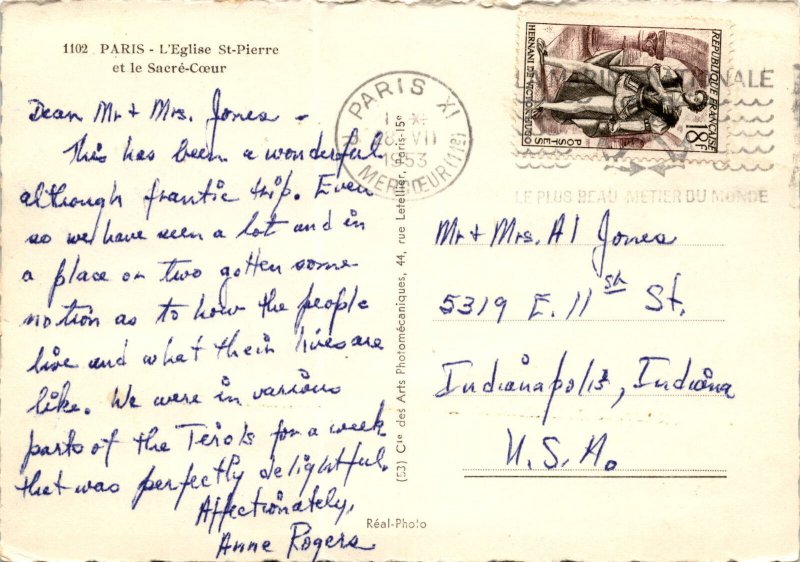 1102 PARIS - L'Eglise St-Pierre
et le Sacré-Cœur
Dear Mr + Mrs. Jones -
This has been a wonderful
although frantic trip. Even
so we have seen a lot and in
a place or two gotten some
notion as to how the people
live and what their lives are
like. We were in various
parts of the Terols for a week
that was perfectly delightful.
Affectionately,
Anne Rogers
(53) Cie des Arts Photomécaniques, 44, rue Letellier, Paris-15e
Réal-Photo
PARIS XI
VII
1953
MERCŒUR (11e)
RÉPUBLIQUE FRANÇAISE
HERNANI DE VICTOR HUGO
POSTES
18F
LA MARINE NATIONALE
LE PLUS BEAU METIER DU MONDE
Mr + Mrs. Al Jones
5319 E. 11th St.
Indianapolis, Indiana
U.S.A.